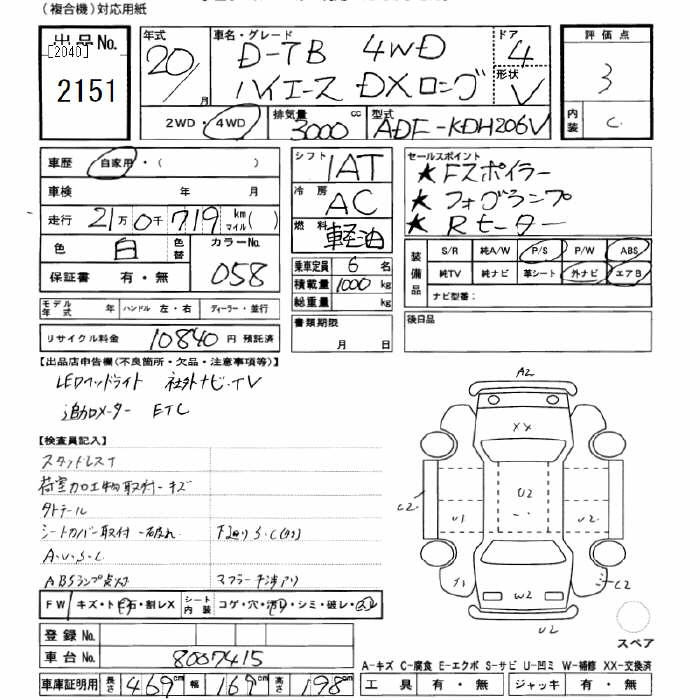 (複合機)対応用紙
出品No. [2040] 2151
年式 20/ 月
車名・グレード D-TB 4WD
ハイエース DXロング
ドア 4
形状 V
評価点 3
内装 C
2WD・4WD 排気量 3000 cc 型式 ADF-KDH206V
車歴 自家用・( )
車検 年 月
走行 21万0千719 km マイル( )
色 白 色替 カラーNo. 058
保証書 有・無
モデル年式 年 ハンドル 左・右 ディーラー・並行
リサイクル料金 10840 円 預託済
シフト IAT
冷房 AC
燃料 軽油
乗車定員 6 名
積載量 1000 kg
総重量 kg
書類期限 月 日
セールスポイント
★Fスポイラー
★フォグランプ
★Rモーター
装備品 S/R 純A/W P/S P/W ABS
純TV 純ナビ 革シート 外ナビ エアB
ナビ型番:
後日品
【出品店申告欄(不良箇所・欠品・注意事項等)】
LEDヘッドライト 社外ナビ・TV
追加メーター ETC
【検査員記入】
スタッドレスT
荷室加工物取付・キズ
シートカバー取付 破れ 下廻りS・C
A・U・S・C
ABSランプ点灯 マフラー干渉アリ
FW キズ・トビ石・割レX シート内装 コゲ・穴・汚レ・シミ・破レ・
登録No.
車台No. 8007415
車庫証明用 長さ 469 cm 幅 169 cm 高さ 198 cm
A2
XX
U2
C2
U1
U2
C2
W2
U2
スペア
A-キズ C-腐食 E-エクボ S-サビ U-凹ミ W-補修 XX-交換済
工具 有・無 ジャッキ 有・無